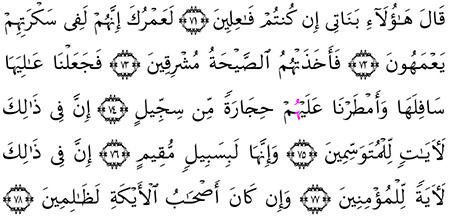 قَالَ هَـٰٓؤُلَآءِ بَنَاتِىٓ إِن كُنتُمْ فَـٰعِلِينَ ﴿٧١﴾ لَعَمْرُكَ إِنَّهُمْ لَفِى سَكْرَتِهِمْ
يَعْمَهُونَ ﴿٧٢﴾ فَأَخَذَتْهُمُ ٱلصَّيْحَةُ مُشْرِقِينَ ﴿٧٣﴾ فَجَعَلْنَا عَـٰلِيَهَا
سَافِلَهَا وَأَمْطَرْنَا عَلَيْهِمْ حِجَارَةً مِّن سِجِّيلٍ ﴿٧٤﴾ إِنَّ فِى ذَٰلِكَ
لَـَٔايَـٰتٍ لِّلْمُتَوَسِّمِينَ ﴿٧٥﴾ وَإِنَّهَا لَبِسَبِيلٍ مُّقِيمٍ ﴿٧٦﴾ إِنَّ فِى ذَٰلِكَ
لَـَٔايَةً لِّلْمُؤْمِنِينَ ﴿٧٧﴾ وَإِن كَانَ أَصْحَـٰبُ ٱلْأَيْكَةِ لَظَـٰلِمِينَ ﴿٧٨﴾